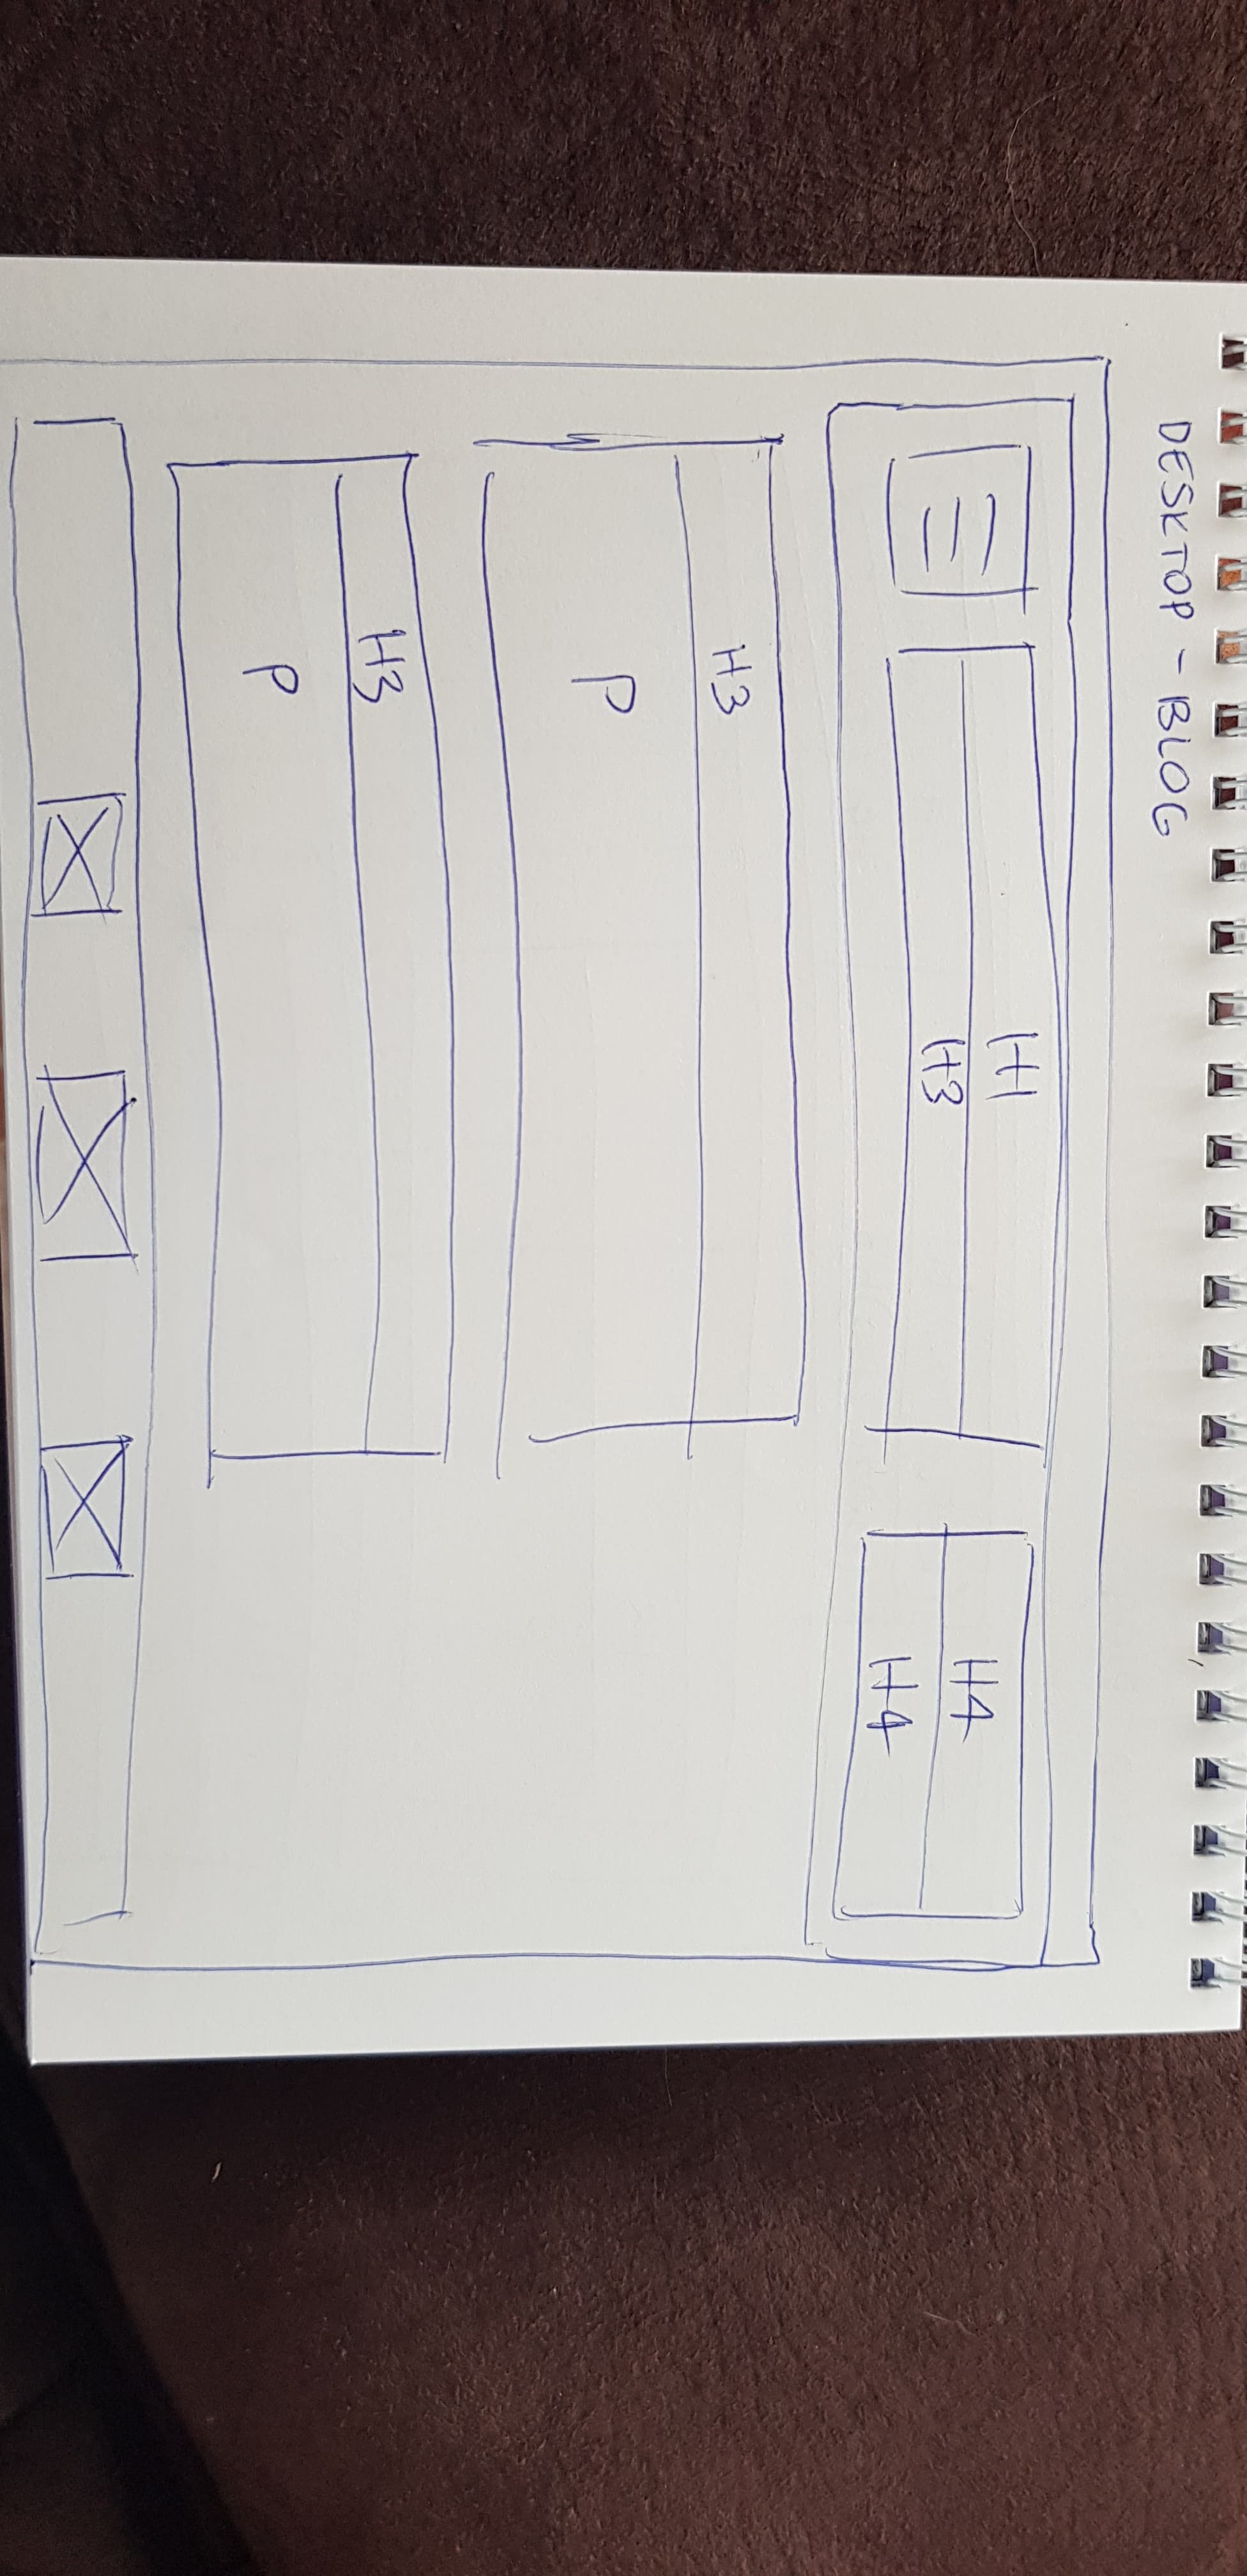 DESKTOP - BLOG
H1
H3
H4
H4
H3
P
H3
P